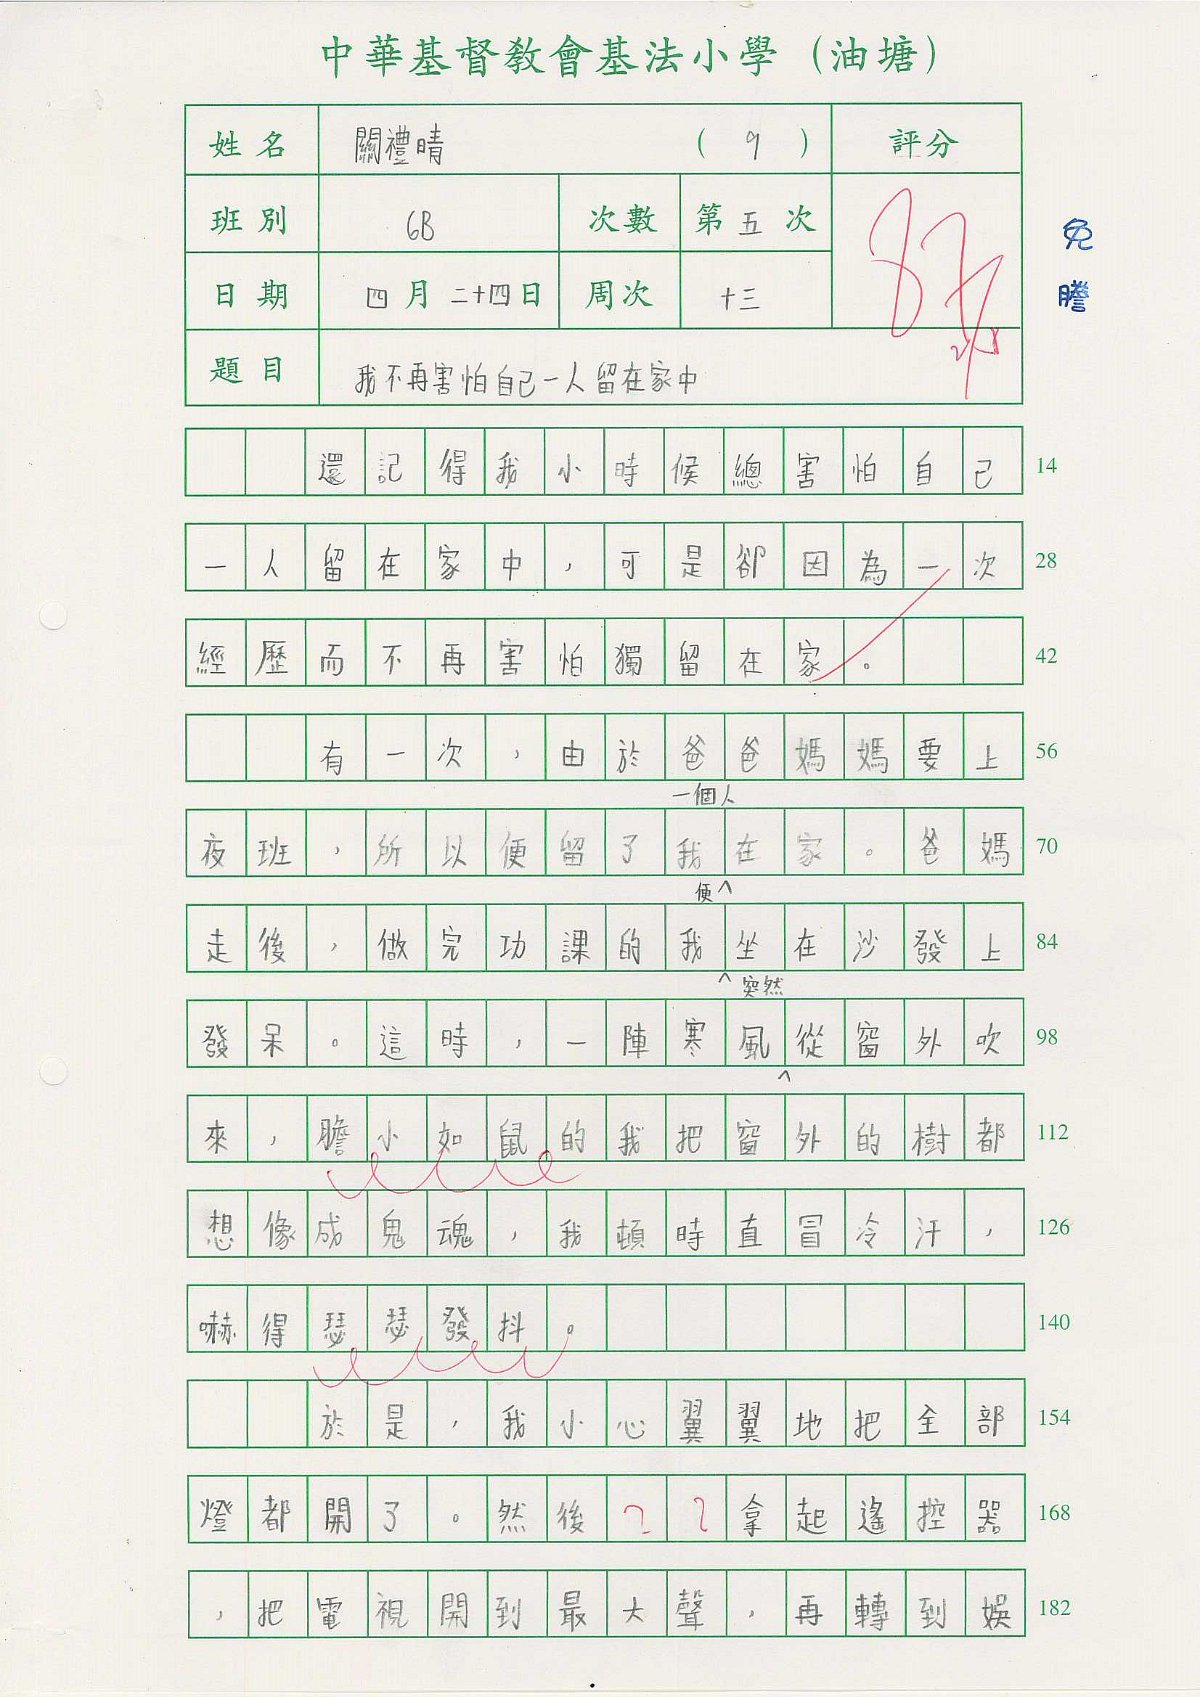 中華基督教會基法小學（油塘）
姓名 關禮晴 （9） 評分
班別 6B 次數 第五次
87
免謄
日期 四月二十四日 周次 十三
題目 我不再害怕自己一人留在家中
還記得我小時候總害怕自己 14
一人留在家中，可是卻因為一次 28
經歷而不再害怕獨留在家。 42
有一次，由於爸爸媽媽要上 56
一個人
夜班，所以便留了我在家。爸媽 70
便^
走後，做完功課的我坐在沙發上 84
^突然
發呆。這時，一陣寒風從窗外吹 98
^
來，膽小如鼠的我把窗外的樹都 112
想像成鬼魂，我頓時直冒冷汗， 126
嚇得瑟瑟發抖。 140
於是，我小心翼翼地把全部 154
燈都開了。然後拿起遙控器 168
，把電視開到最大聲，再轉到娛 182